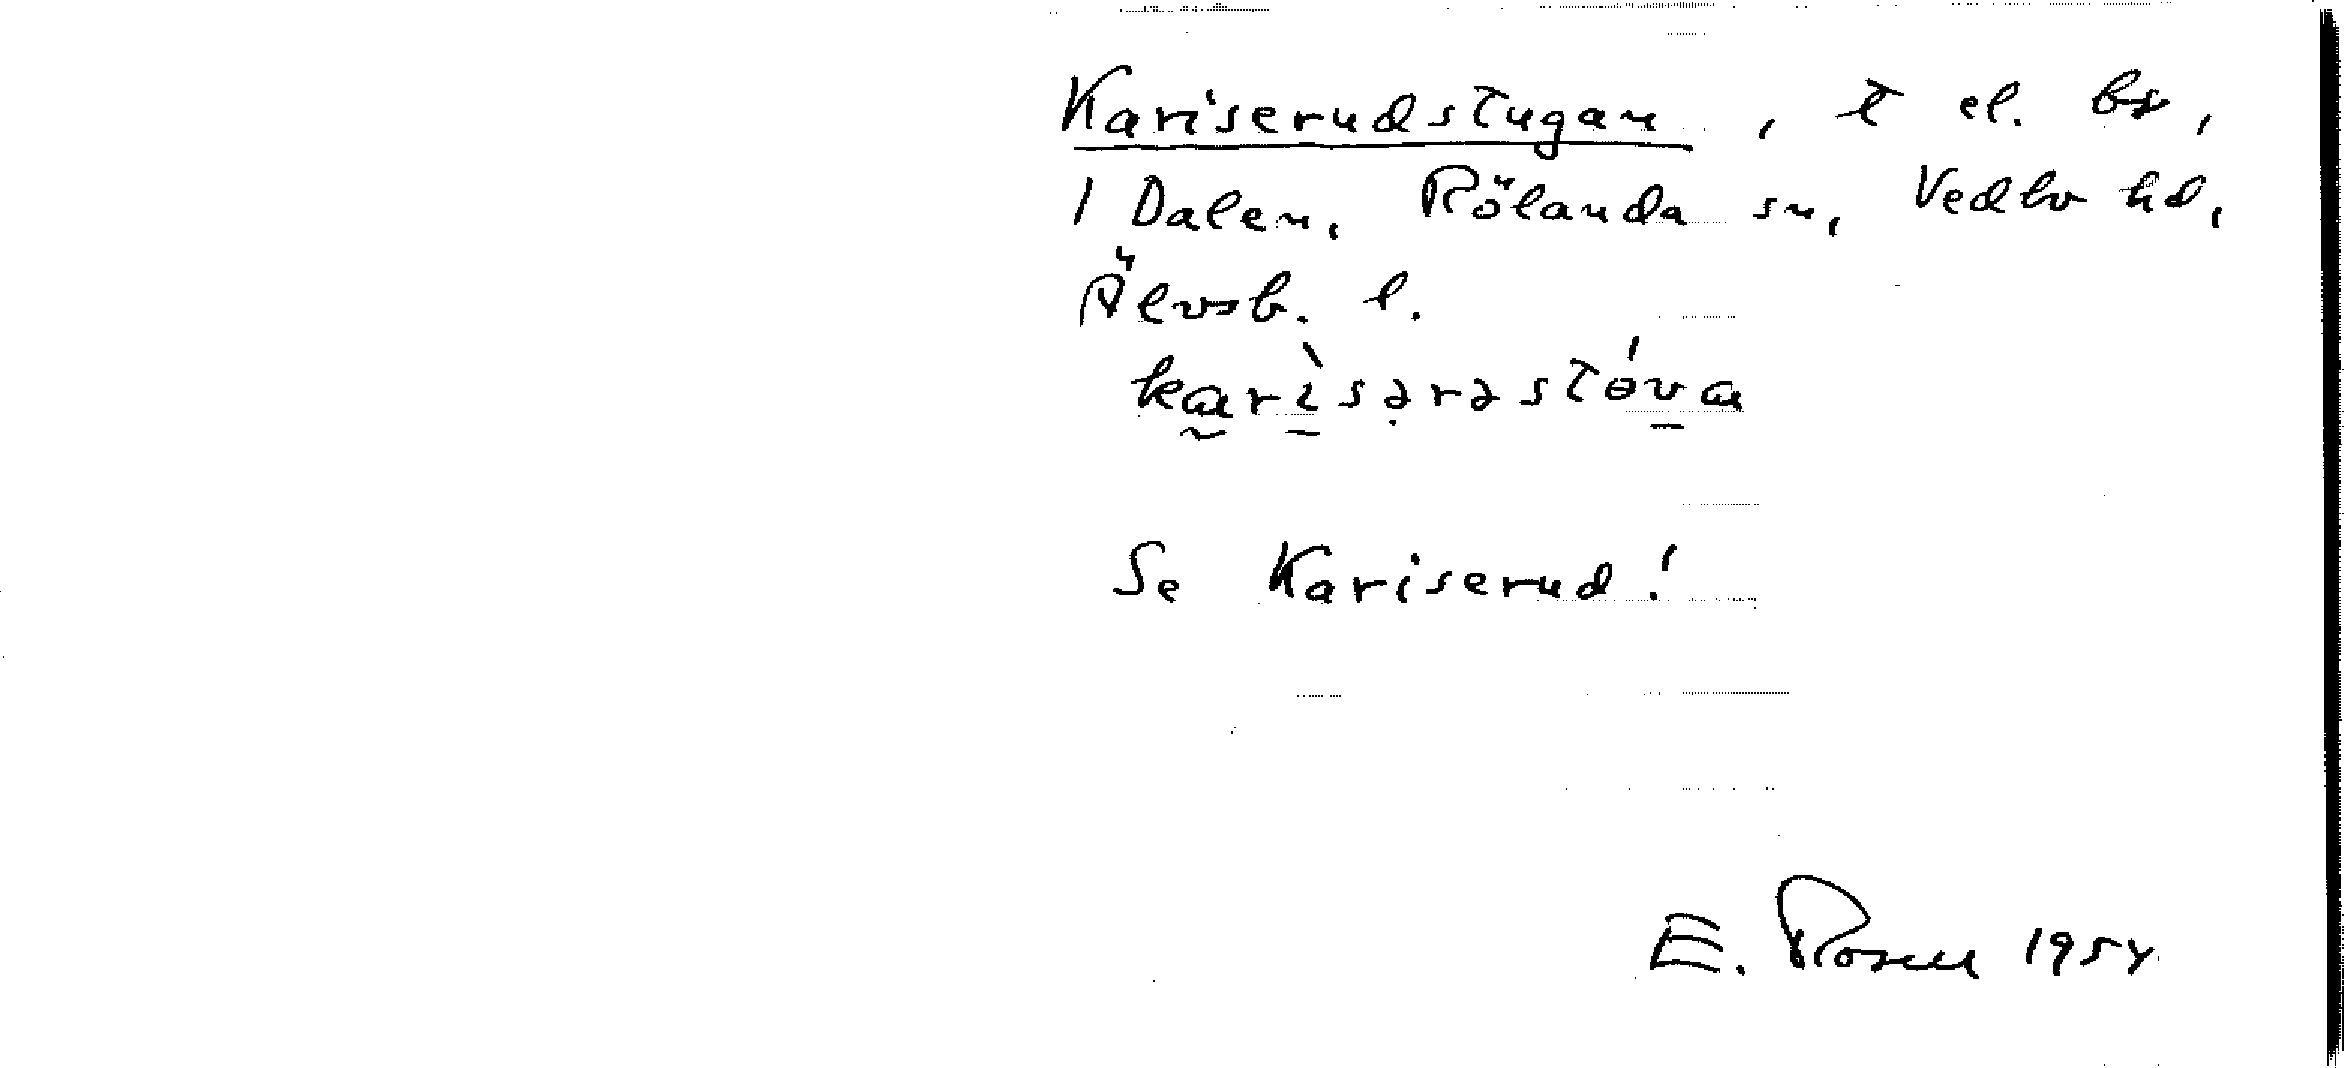 Kariserudstugan, t el. bs,
1 Dalen, Rölanda sn, Vedbo hd,
Älvsb. l.
karìsərəstóva
Se Kariserud!
E. Rosell 1954